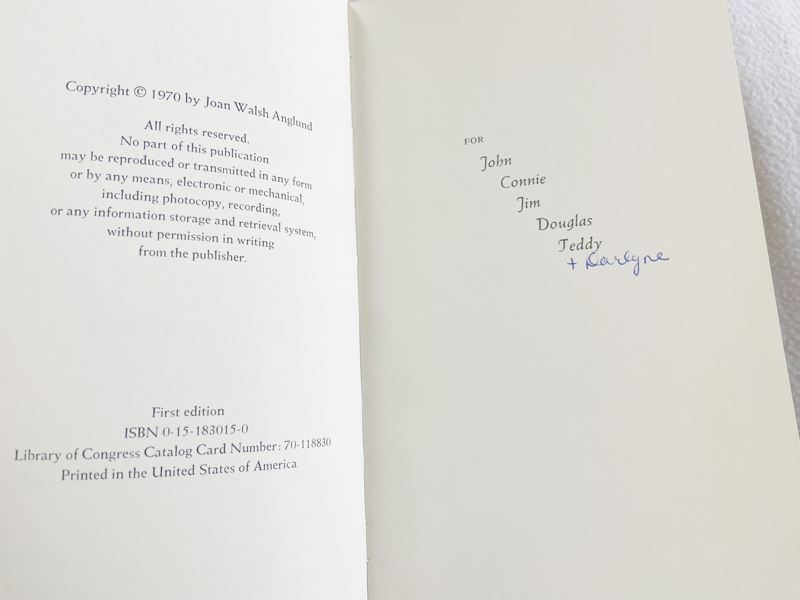 Copyright © 1970 by Joan Walsh Anglund
All rights reserved.
No part of this publication
may be reproduced or transmitted in any form
or by any means, electronic or mechanical,
including photocopy, recording,
or any information storage and retrieval system,
without permission in writing
from the publisher.
First edition
ISBN 0-15-183015-0
Library of Congress Catalog Card Number: 70-118830
Printed in the United States of America
FOR
John
Connie
Jim
Douglas
Teddy
+ Darlyne